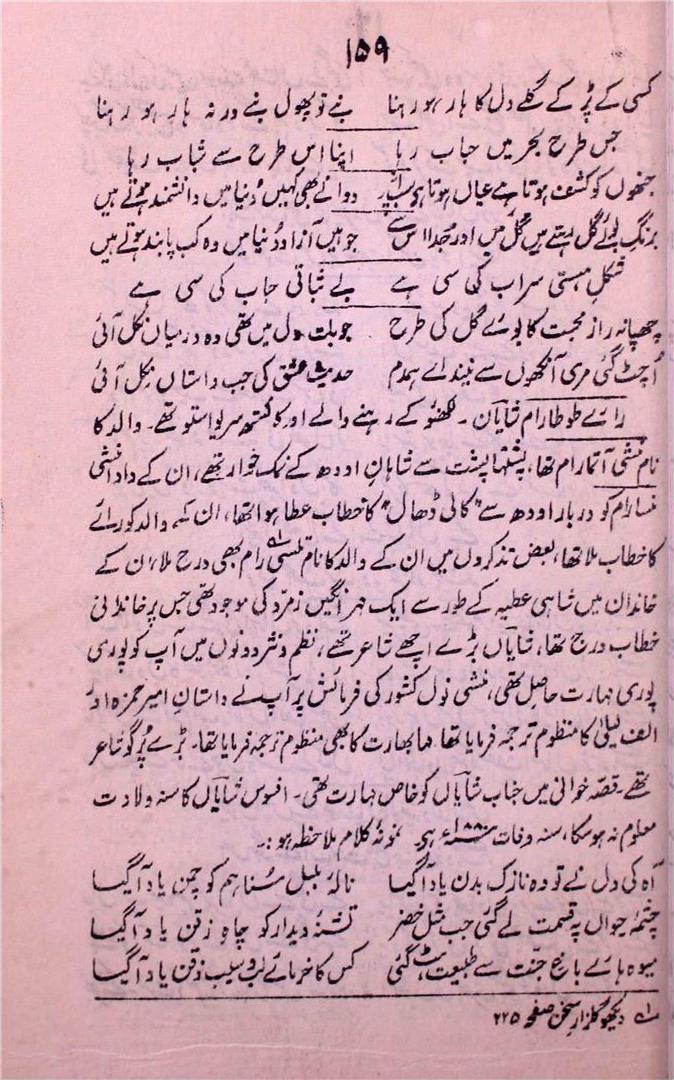 ۱۵۹
کسی کے پڑ کے گلے دل کا ہار ہو رہنا بنے تو پھول بنے ورنہ ہار ہو رہنا
جس طرح بحر میں حباب رہا اپنا اس طرح سے شباب رہا
جنھوں کو کشف ہوتا ہے عیاں ہوتا ہو سب دوانے بھی کہیں دُنیا میں دانشمند ہوتے ہیں
برنگِ بوئے گل رہتے ہیں گل میں اور جدا اس سے جو ہیں آزاد دُنیا میں وہ کب پابند ہوتے ہیں
شکلِ ہستی سراب کی سی ہے بے ثباتی حباب کی سی ہے
چھپا نہ راز محبت کا بوئے گل کی طرح جو بات دل میں تھی وہ درمیاں نکل آئی
اُچٹ گئی مری آنکھوں سے نیند اے ہمدم حدیث عشق کی جب داستاں نکل آئی
رائے طوطا رام شایاں۔ لکھنؤ کے رہنے والے اور کائستھ سریواستو تھے۔ والد کا
نام منشی آتما رام تھا، پشتہا پشت سے شاہانِ اودھ کے نمک خوار تھے، ان کے دادا منشی
منسا رام کو دربار اودھ سے "کالی ڈھال" کا خطاب عطا ہوا تھا، ان کے والد کو رائے
کا خطاب ملا تھا، بعض تذکروں میں ان کے والد کا نام تلسی۱؎ رام بھی درج ملا، ان کے
خاندان میں شاہی عطیہ کے طور سے ایک مہر نگیں زمرد کی موجود تھی جس پر خاندانی
خطاب درج تھا، شایاں بڑے اچھے شاعر تھے، نظم و نثر دونوں میں آپ کو پوری
پوری مہارت حاصل تھی، منشی نول کشور کی فرمائش پر آپ نے داستانِ امیر حمزہ اور
الف لیلیٰ کا منظوم ترجمہ فرمایا تھا مہابھارت کا بھی منظوم ترجمہ فرمایا تھا۔ بڑے پُرگو شاعر
تھے۔ قصّہ خوانی میں جناب شایاں کو خاص مہارت تھی۔ افسوس شایاں کا سنہ ولادت
معلوم نہ ہو سکا، سنہ وفات ۱۸۸۰ء ہے۔ نمونۂ کلام ملاحظہ ہو:۔
آہ کی دل نے تو وہ نازک بدن یاد آگیا نالۂ بلبل سُنا ہم کو چمن یاد آگیا
چشمۂ حیواں پہ قسمت لے گئی جب مثل خضر تشنۂ دیدار کو چاہِ ذقن یاد آگیا
میوہ ہائے باغِ جنت سے طبیعت ہٹ گئی کس کا خرمائے لب و سیب ذقن یاد آگیا
۱؎ دیکھو گلزارِ سخن صفحہ ۲۲۵